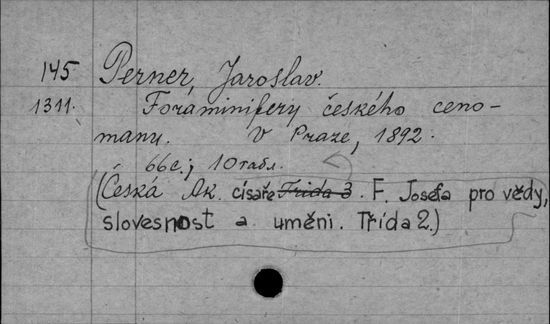 145 Perner, Jaroslav.
1311. Foraminifery českého ceno-
manu. V Praze, 1892.
66 c.; 10 табл.
(Česká Ak. císaře Třida 3. F. Josefa pro vědy,
slovesnost a uměni. Třída 2.)